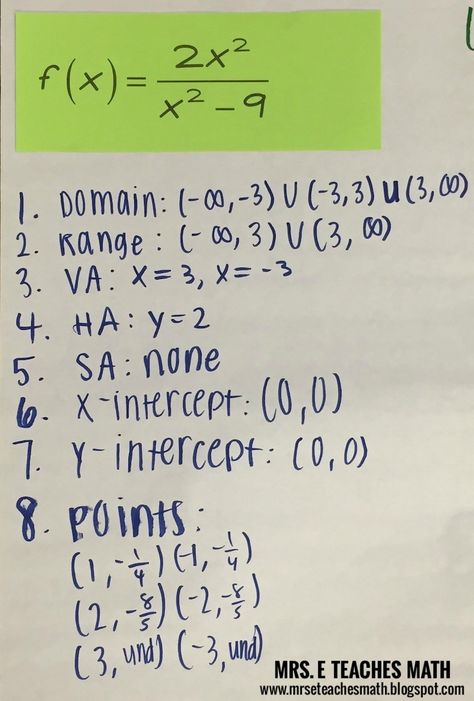 f(x) = 2x² / x² − 9
1. Domain: (-∞,-3) U (-3,3) U (3,∞)
2. Range: (-∞,3) U (3,∞)
3. VA: x=3, x=-3
4. HA: y=2
5. SA: none
6. X-intercept: (0,0)
7. Y-intercept: (0,0)
8. Points:
(1,-1/4) (-1,-1/4)
(2,-8/5) (-2,-8/5)
(3, und) (-3, und)
MRS. E TEACHES MATH
www.mrseteachesmath.blogspot.com